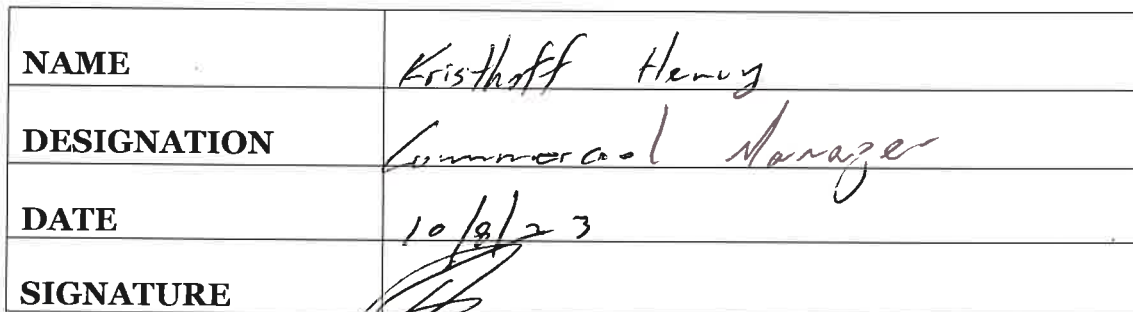 NAME Kristhoff Henry
DESIGNATION Commercial Manager
DATE 10/8/23
SIGNATURE